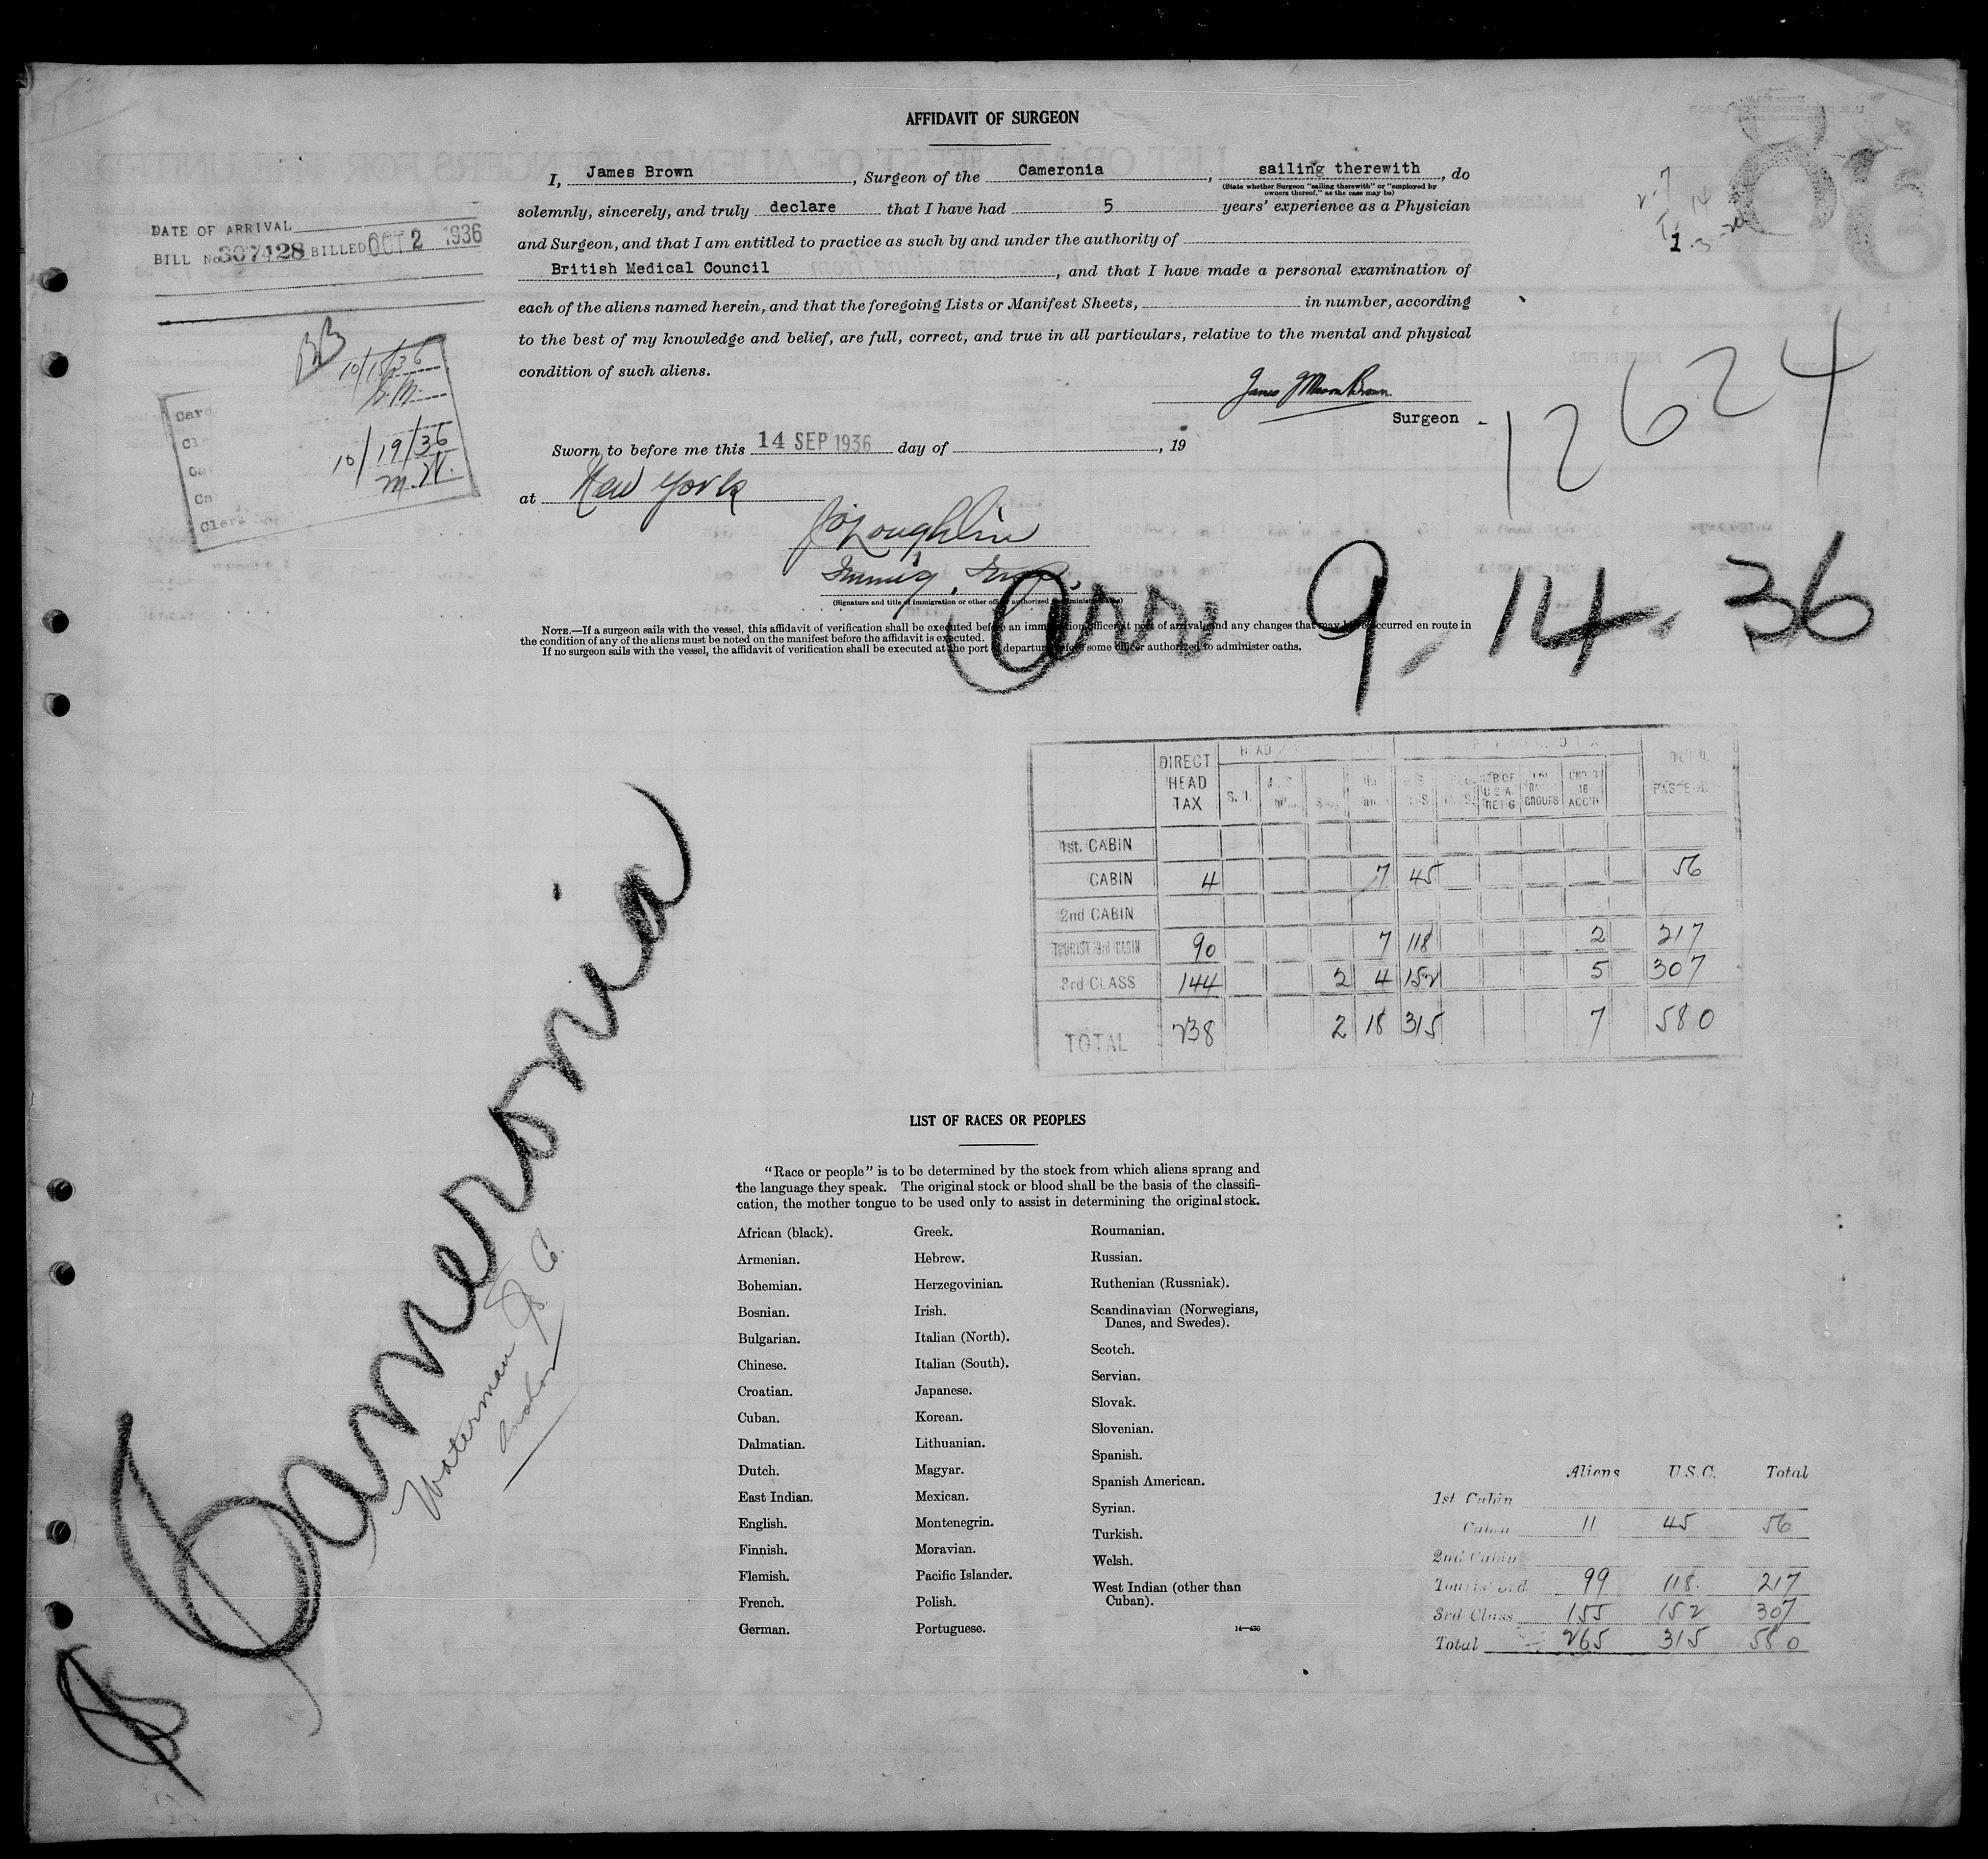 AFFIDAVIT OF SURGEON
I, James Brown, Surgeon of the Cameronia, sailing therewith, do
(State whether Surgeon "sailing therewith" or "employed by
owners thereof," as the case may be)
solemnly, sincerely, and truly declare that I have had 5 years' experience as a Physician
and Surgeon, and that I am entitled to practice as such by and under the authority of
British Medical Council, and that I have made a personal examination of
each of the aliens named herein, and that the foregoing Lists or Manifest Sheets, in number, according
to the best of my knowledge and belief, are full, correct, and true in all particulars, relative to the mental and physical
condition of such aliens.
Surgeon
Sworn to before me this 14 SEP 1936 day of , 19
at New York
J O'Loughlin
Immig. Insp.
(Signature and title of immigration or other officer authorized to administer oaths)
NOTE.—If a surgeon sails with the vessel, this affidavit of verification shall be executed before an immigration officer at port of arrival and any changes that may have occurred en route in
the condition of any of the aliens must be noted on the manifest before the affidavit is executed.
If no surgeon sails with the vessel, the affidavit of verification shall be executed at the port of departure before some officer authorized to administer oaths.
DATE OF ARRIVAL
BILL No 307428 BILLED OCT 2 1936
BB
10/15/36
10/19/36
M.H.
12624
Arr 9-14-36
DIRECT HEAD TAX
1st. CABIN
CABIN 4 7 45 56
2nd CABIN
TOURIST 3rd CABIN 90 7 118 2 217
3rd CLASS 144 2 4 152 5 307
TOTAL 238 2 18 315 7 580
Cameronia
Waterman SS. Co.
Anchor
LIST OF RACES OR PEOPLES
"Race or people" is to be determined by the stock from which aliens sprang and
the language they speak. The original stock or blood shall be the basis of the classifi-
cation, the mother tongue to be used only to assist in determining the original stock.
African (black).
Armenian.
Bohemian.
Bosnian.
Bulgarian.
Chinese.
Croatian.
Cuban.
Dalmatian.
Dutch.
East Indian.
English.
Finnish.
Flemish.
French.
German.
Greek.
Hebrew.
Herzegovinian.
Irish.
Italian (North).
Italian (South).
Japanese.
Korean.
Lithuanian.
Magyar.
Mexican.
Montenegrin.
Moravian.
Pacific Islander.
Polish.
Portuguese.
Roumanian.
Russian.
Ruthenian (Russniak).
Scandinavian (Norwegians,
Danes, and Swedes).
Scotch.
Servian.
Slovak.
Slovenian.
Spanish.
Spanish American.
Syrian.
Turkish.
Welsh.
West Indian (other than
Cuban).
Aliens U.S.C. Total
1st Cabin
Cabin 11 45 56
2nd Cabin
Tourist 3rd 99 118 217
3rd Class 155 152 307
Total 265 315 580